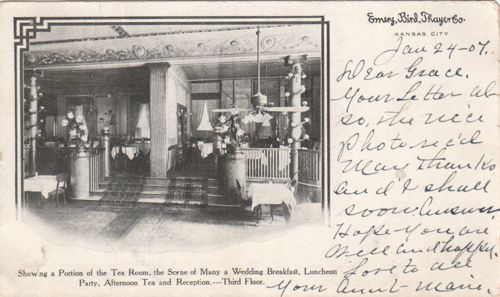 Emery, Bird, Thayer Co.
KANSAS CITY
Jan 24-07.
Dear Grace.
Your Letter al-
so, the nice
photo rec'd
Many thanks
and I shall
soon answer
Hope you are
Well and happy.
Love to all
Your Aunt Marie.
Showing a Portion of the Tea Room, the Scene of Many a Wedding Breakfast, Luncheon
Party, Afternoon Tea and Reception.---Third Floor.